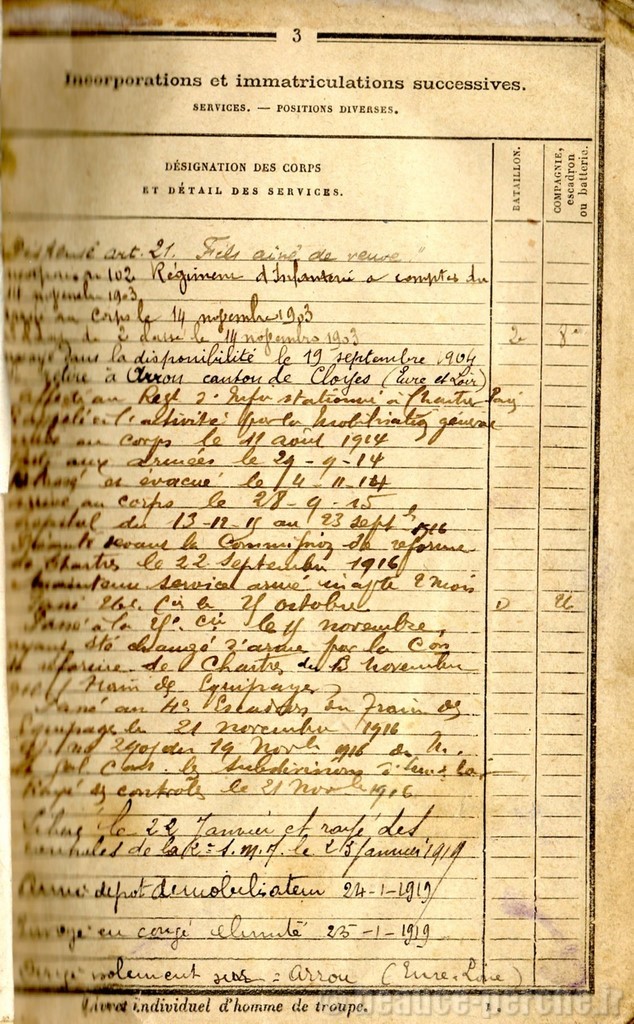 3
Incorporations et immatriculations successives.
SERVICES. — POSITIONS DIVERSES.
DÉSIGNATION DES CORPS
ET DÉTAIL DES SERVICES.
BATAILLON.
COMPAGNIE,
escadron
ou batterie.
art. 21. Fils ainé de veuve"
102 Régiment d'Infanterie a compter du
novembre 1903
au corps le 14 novembre 1903
de 2 classe le 14 novembre 1903 2e 8e
dans la disponibilité le 19 septembre 1904
à Arrou canton de Cloyes (Eure et Loir)
au Regt d' Infie stationné à Chartres
l'activité par la mobilisation générale
au corps le 11 août 1914
aux armées le 29-9-14
et évacué le 4-11-14
arrivé au corps le 28-9-15
hopital du 13-12-15 au 23 sept 1916
devant la Commission de reforme
de Chartres le 22 septembre 1916
maintenu service armé inapte 2 mois
Passé 26e Cie le octobre 26
Passé à la Cie le novembre,
ayant été changé d'arme par la Con
de reforme de Chartres du 13 novembre
(Train des Equipages)
Passé au 4e Escadron du Train des
Equipages le 21 novembre 1916
no du 19 Novbre 1916 du
Gal Cdt les subdivisions d'Eure & Loir
Rayé des controles le 21 Novbre 1916
le 22 Janvier et rayé des
controles de la R.S.M.J. le 23 janvier 1919
Arrivé depot démobilisateur 24-1-1919
Envoyé en congé illimité 25-1-1919
Dirigé isolement sur Arrou (Eure & Loir)
Livret individuel d'homme de troupe. 1.
beauce-perche.fr